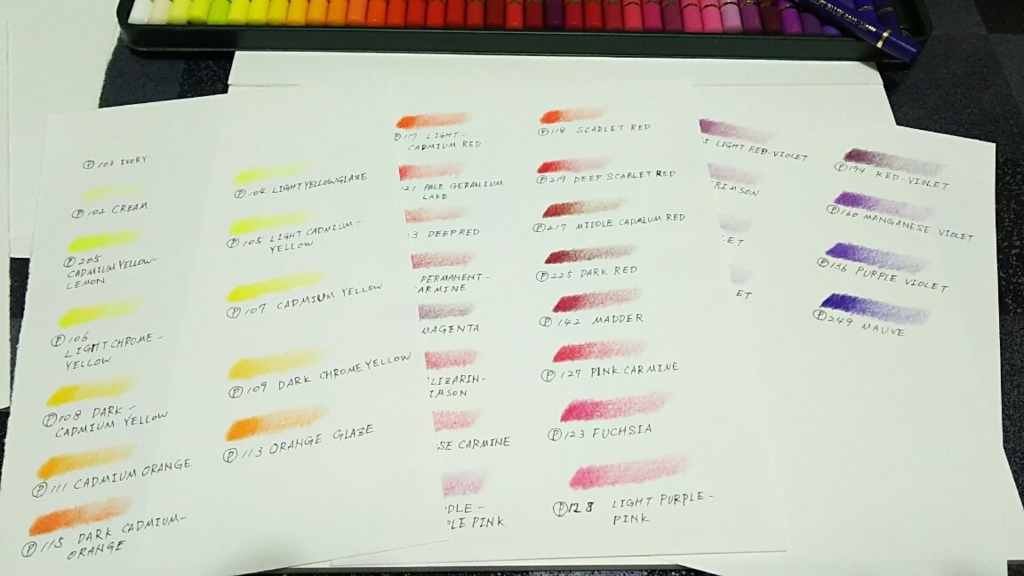 Ⓟ 103 IVORY
Ⓟ 102 CREAM
Ⓟ 205
CADMIUM YELLOW-
LEMON
Ⓟ 106
LIGHT CHROME-
YELLOW
Ⓟ 108 DARK-
CADMIUM YELLOW
Ⓟ 111 CADMIUM ORANGE
Ⓟ 115 DARK CADMIUM-
ORANGE
Ⓟ 104 LIGHT YELLOW GLAZE
Ⓟ 105 LIGHT CADMIUM-
YELLOW
Ⓟ 107 CADMIUM YELLOW
Ⓟ 109 DARK CHROME YELLOW
Ⓟ 113 ORANGE GLAZE
Ⓟ 117 LIGHT-
CADMIUM RED
21 PALE GERANIUM
LAKE
3 DEEP RED
PERMANENT-
ARMINE
MAGENTA
LIZARIN-
IMSON
SE CARMINE
DLE-
PLE PINK
Ⓟ 118 SCARLET RED
Ⓟ 219 DEEP SCARLET RED
Ⓟ 217 MIDDLE CADMIUM RED
Ⓟ 225 DARK RED
Ⓟ 142 MADDER
Ⓟ 127 PINK CARMINE
Ⓟ 123 FUCHSIA
Ⓟ 128 LIGHT PURPLE-
PINK
5 LIGHT RED-VIOLET
RIMSON
ET
ET
Ⓟ 194 RED-VIOLET
Ⓟ 160 MANGANESE VIOLET
Ⓟ 136 PURPLE VIOLET
Ⓟ 249 MAUVE